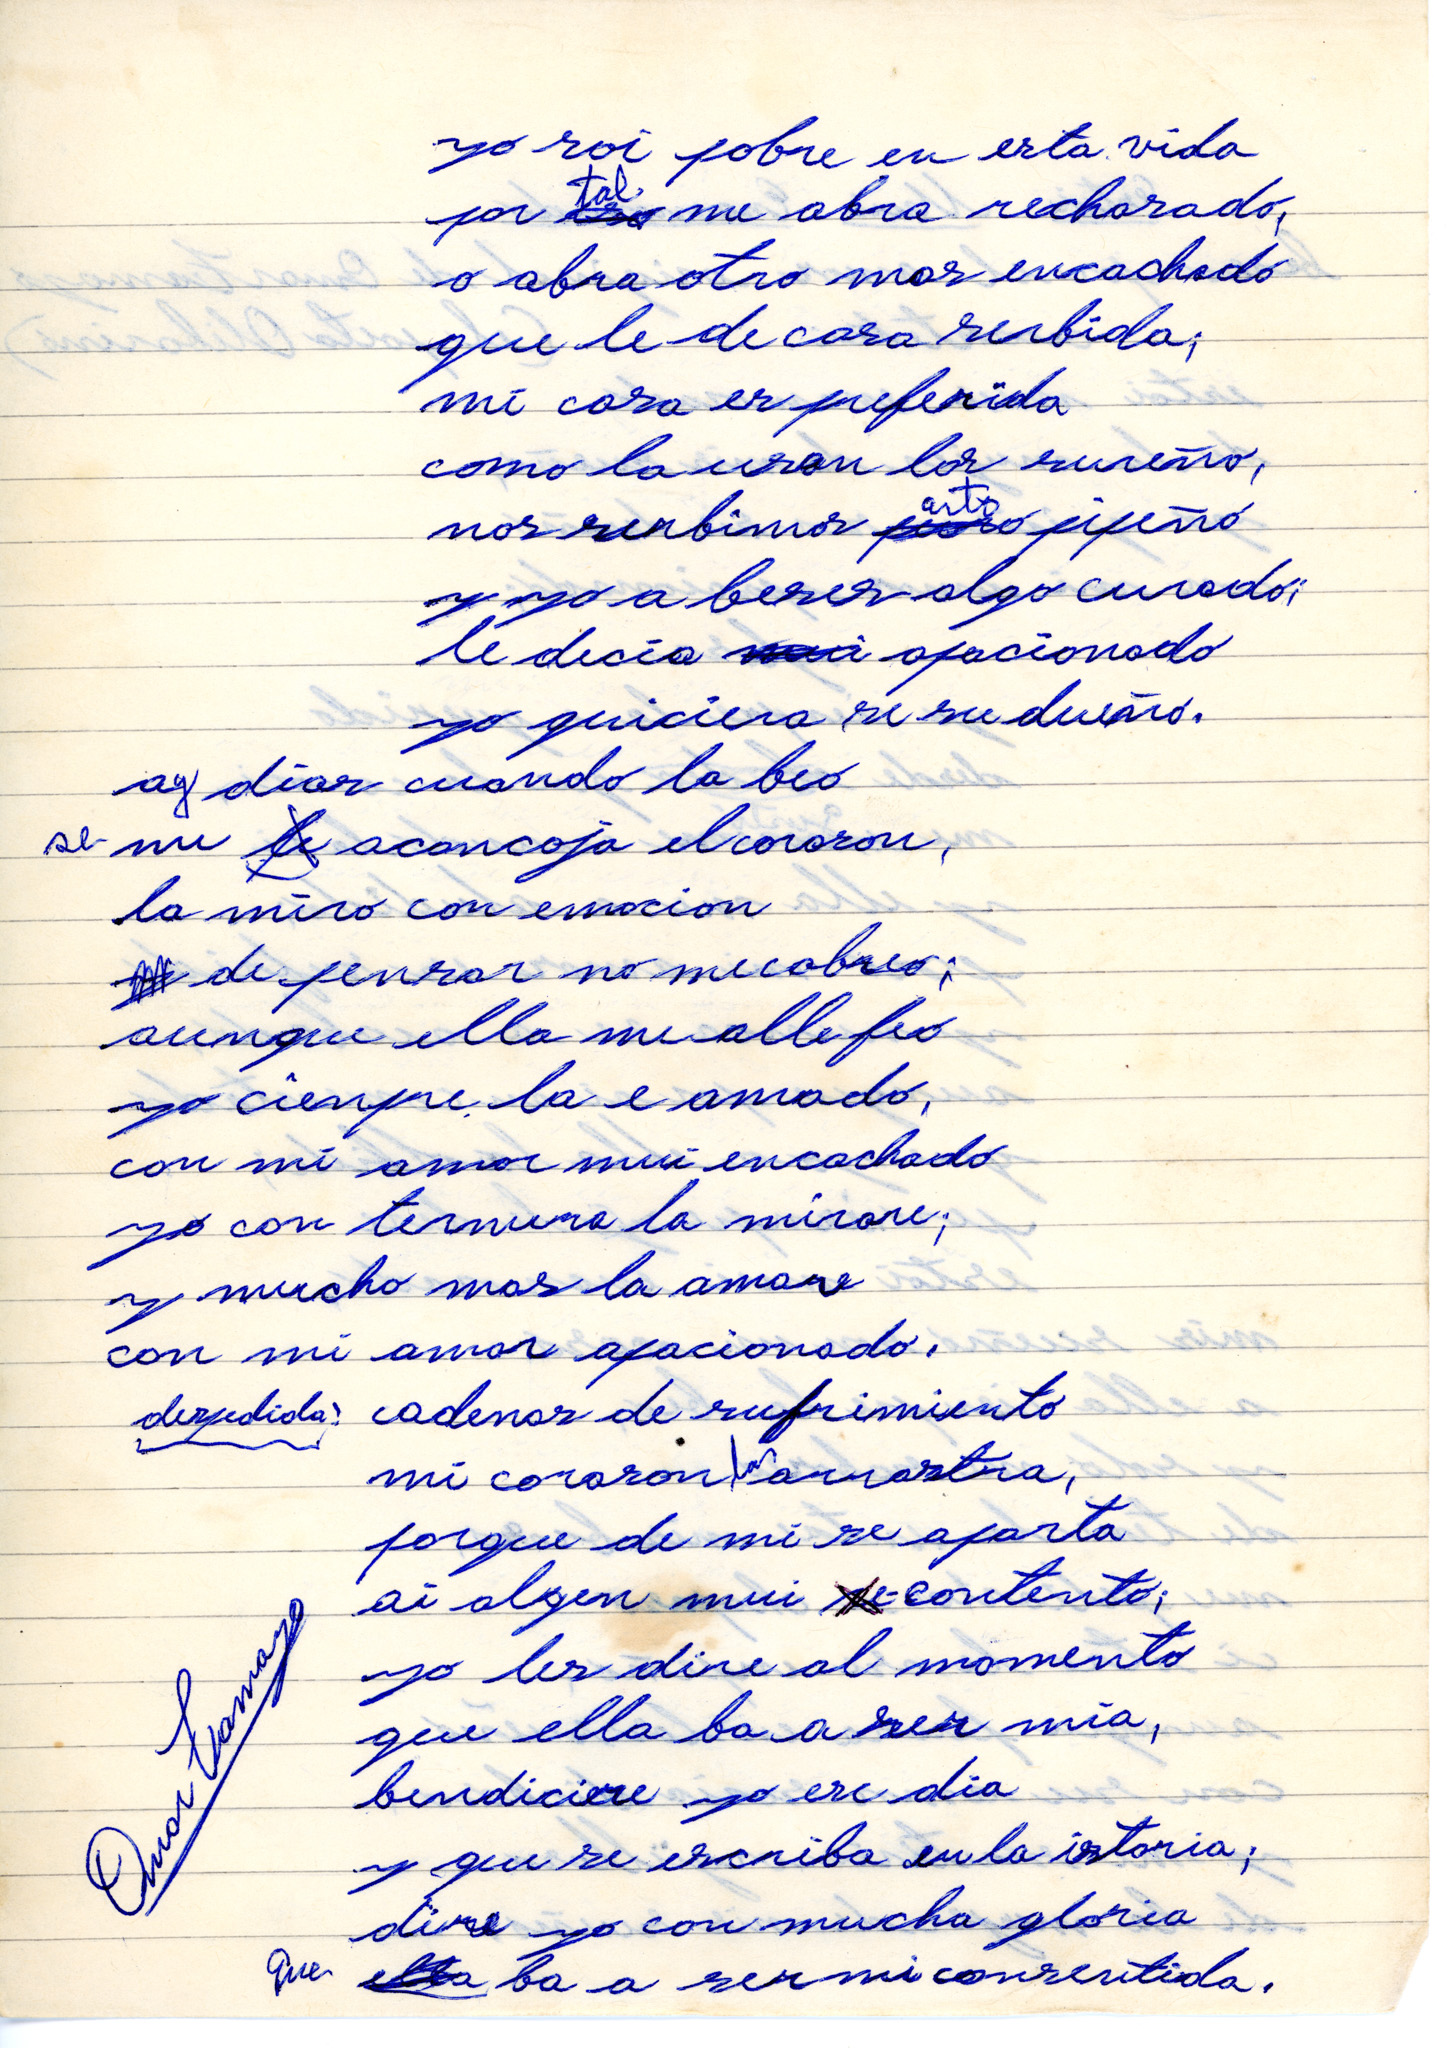 yo soi pobre en esta vida
por tal me abra rechasado,
o abra otro mas encachado
que le de casa serbida;
mi casa es preferida
como la usan los sureño,
nos serbimos arto pipeño
y yo a beses algo curado;
le decia apacionado
yo quiciera se su dueño.
ay dias cuando la beo
se me acancoja el corason,
la miro con emocion
de pensar no me cabreo;
aunque ella me alle feo
yo cienpre la e amado,
con mi amor mui encachado
yo con ternura la mirare;
y mucho mas la amare
con mi amor apacionado.
despedida: cadenas de sufrimiento
mi corason las arrastra,
porque de mi se aparta
ai algen mui contento;
yo les dire al momento
que ella ba a ser mia,
bendicire yo ese dia
y que se escriba en la istoria;
dire yo con mucha gloria
que ba a ser mi consentida.
Omar Tramayo